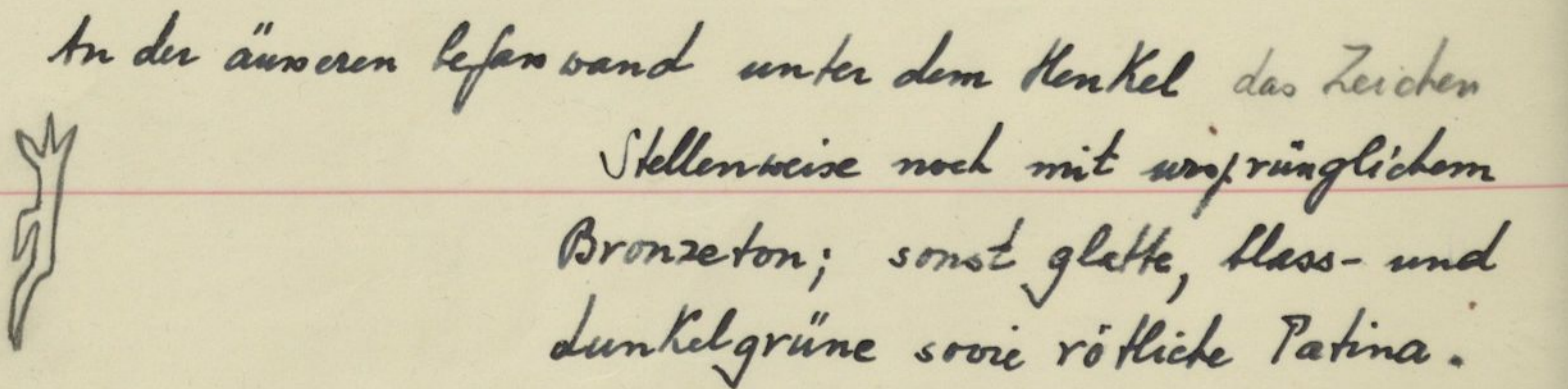 An der äusseren Gefässwand unter dem Henkel das Zeichen
Stellenweise noch mit ursprünglichem
Bronzeton; sonst glatte, blass- und
dunkelgrüne sowie rötliche Patina.